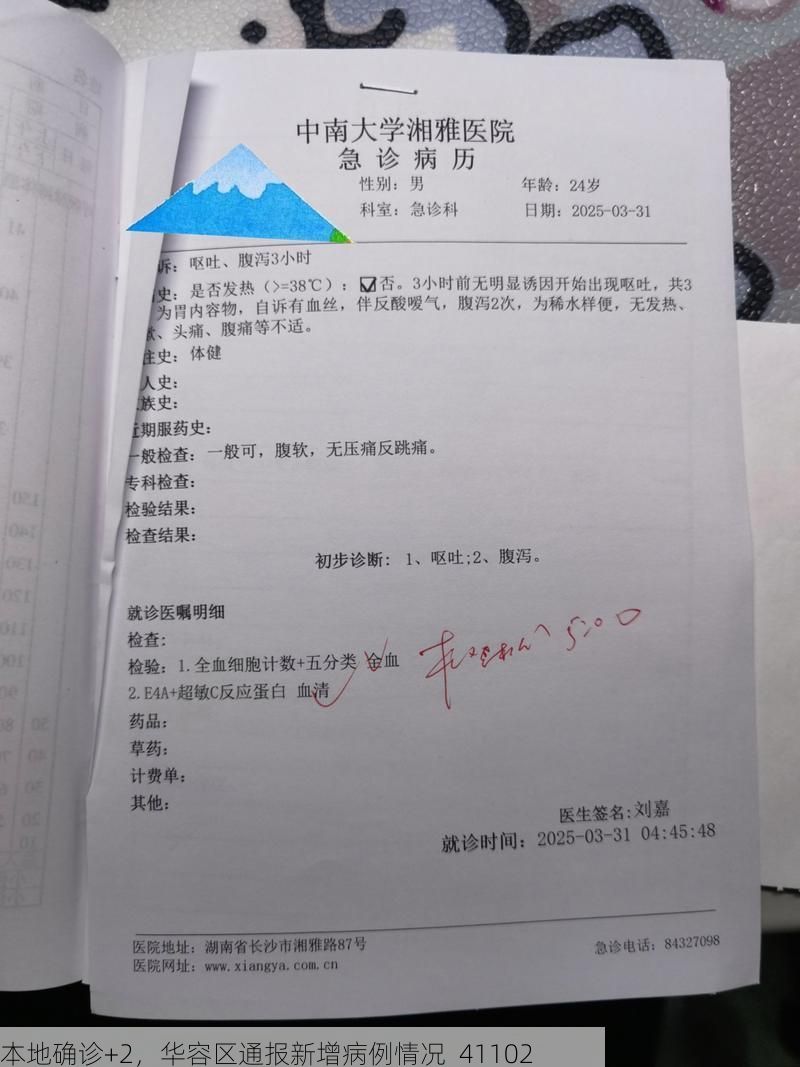 中南大学湘雅医院
急诊病历
性别：男 年龄：24岁
科室：急诊科 日期：2025-03-31
诉：呕吐、腹泻3小时
史：是否发热（>=38℃）：☑否。3小时前无明显诱因开始出现呕吐，共3
为胃内容物，自诉有血丝，伴反酸嗳气，腹泻2次，为稀水样便，无发热、
、头痛、腹痛等不适。
往史：体健
人史：
族史：
近期服药史：
一般检查：一般可，腹软，无压痛反跳痛。
专科检查：
检验结果：
检查结果：
初步诊断：1、呕吐;2、腹泻。
就诊医嘱明细
检查：
检验：1.全血细胞计数+五分类 全血
2.E4A+超敏C反应蛋白 血清
5:00
药品：
草药：
计费单：
其他：
医生签名:刘嘉
就诊时间：2025-03-31 04:45:48
医院地址：湖南省长沙市湘雅路87号 急诊电话：84327098
医院网址：www.xiangya.com.cn
本地确诊+2，华容区通报新增病例情况 41102